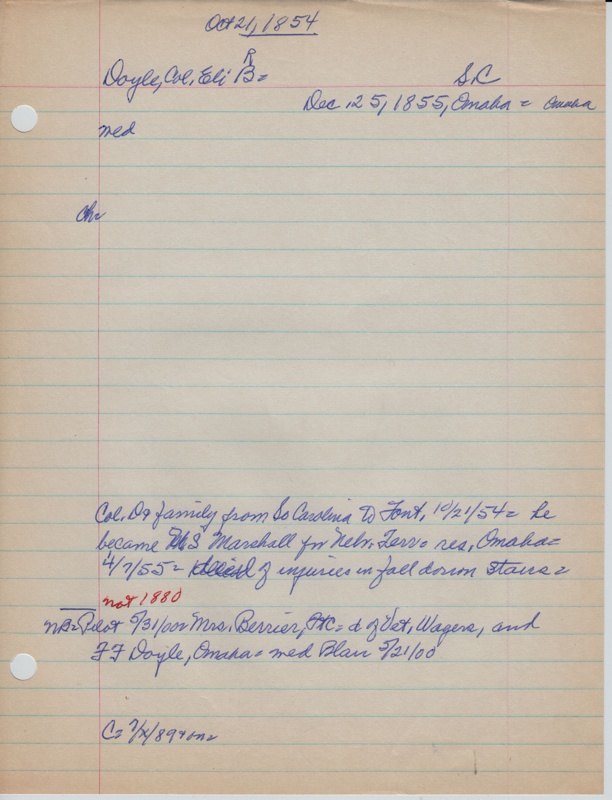 Oct 21, 1854
R
Doyle, Col. Eli B= S.C
Dec 25, 1855, Omaha = Omaha
med
ch=
Col. D & family from So Carolina to Font, 10/21/54= he
became U.S Marshall for Nebr. Terr= res, Omaha=
4/7/55= died of injuries in fall down stairs =
not 1880
NB=Pilot 5/31/00= Mrs. Berrier, = d of Vet, Wagers, and
F F Doyle, Omaha= med Blair 5/21/00